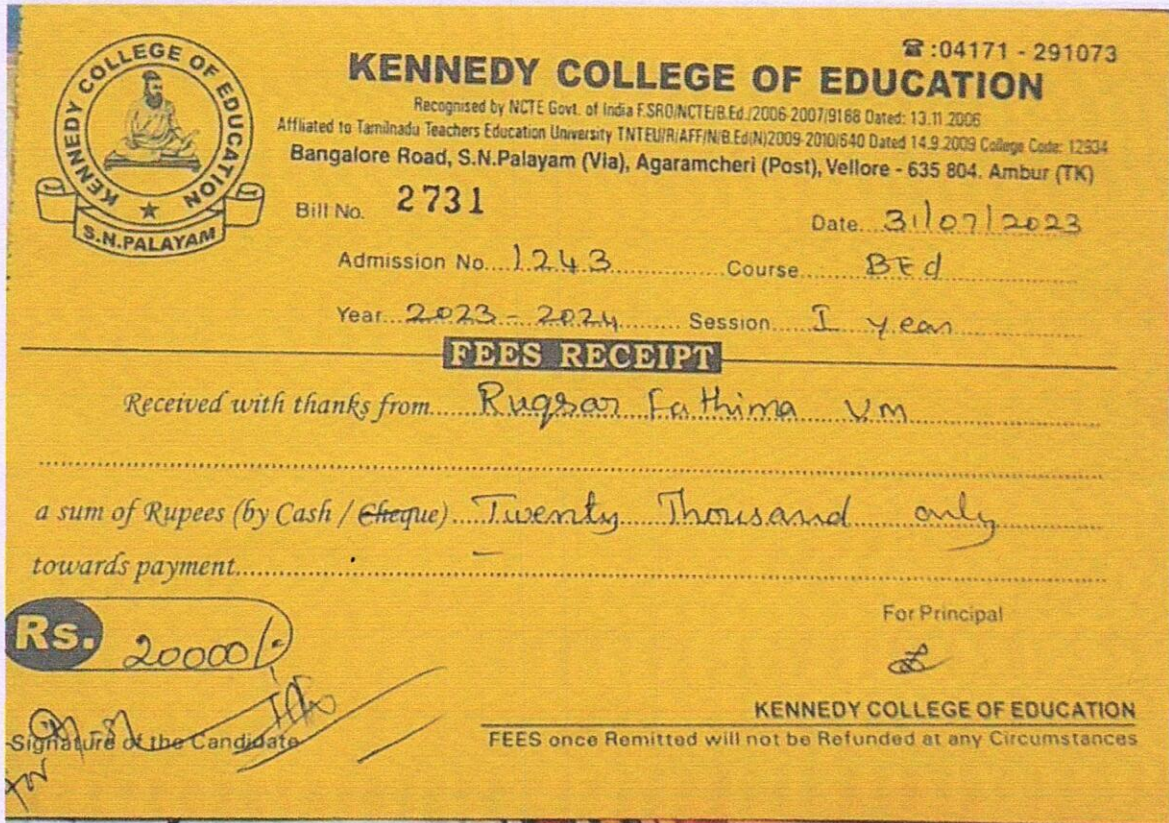 ☎:04171 - 291073
KENNEDY COLLEGE OF EDUCATION
KENNEDY COLLEGE OF EDUCATION
S.N.PALAYAM
Recognised by NCTE Govt. of India F.SRO/NCTE/B.Ed./2006-2007/9168 Dated: 13.11.2006
Affiliated to Tamilnadu Teachers Education University TNTEU/R/AFF/N/B.Ed(N)2009-2010/640 Dated 14.9.2009 College Code: 12934
Bangalore Road, S.N.Palayam (Via), Agaramcheri (Post), Vellore - 635 804. Ambur (TK)
Bill No. 2731 Date 31/07/2023
Admission No 1243 Course BEd
Year 2023 - 2024 Session I year
FEES RECEIPT
Received with thanks from Ruqsar Fathima VM
a sum of Rupees (by Cash / Cheque) Twenty Thousand only
towards payment —
Rs. 20000/-
For Principal
KENNEDY COLLEGE OF EDUCATION
Signature of the Candidate
for
FEES once Remitted will not be Refunded at any Circumstances